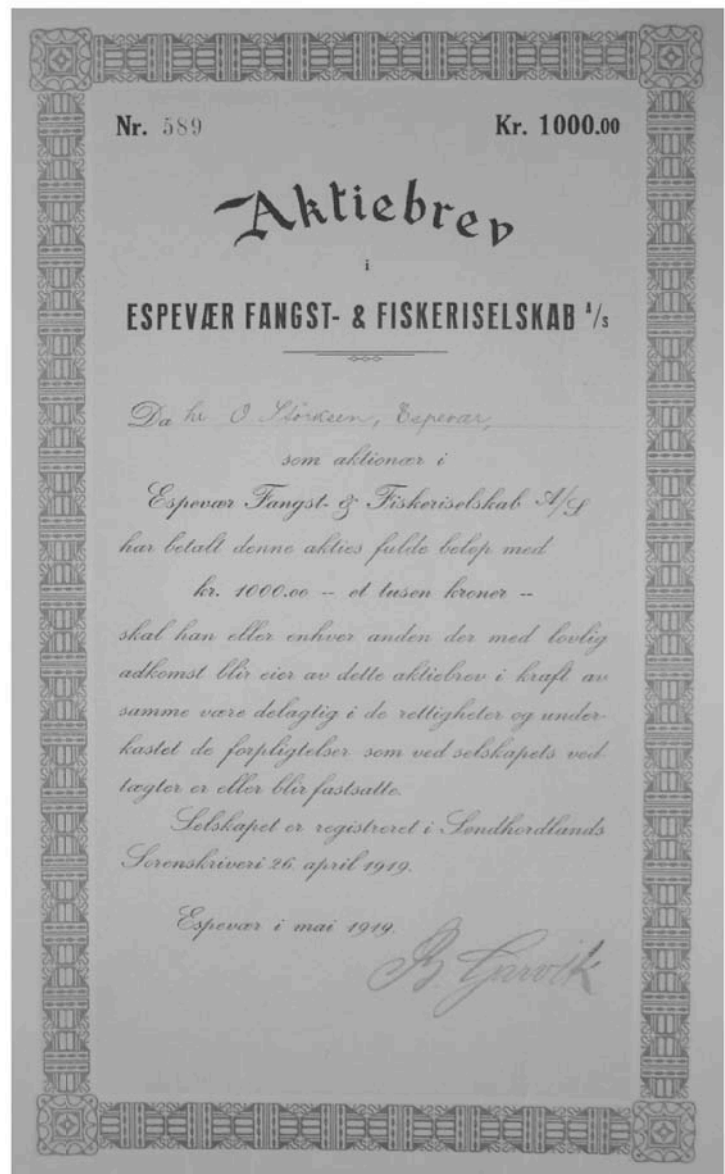 Nr. 589 Kr. 1000.00
Aktiebrev
i
ESPEVÆR FANGST- & FISKERISELSKAB A/S
Da hr O Störksen, Espevær,
som aktionær i
Espevær Fangst- & Fiskeriselskab A/S
har betalt denne akties fulde beløp med
kr. 1000.00 -- et tusen kroner --
skal han eller enhver anden der med lovlig
adkomst blir eier av dette aktiebrev i kraft av
samme være delagtig i de rettigheter og under-
kastet de forpligtelser som ved selskapets ved-
tægter er eller blir fastsatte.
Selskapet er registreret i Søndhordlands
Sorenskriveri 26. april 1919.
Espevær i mai 1919.